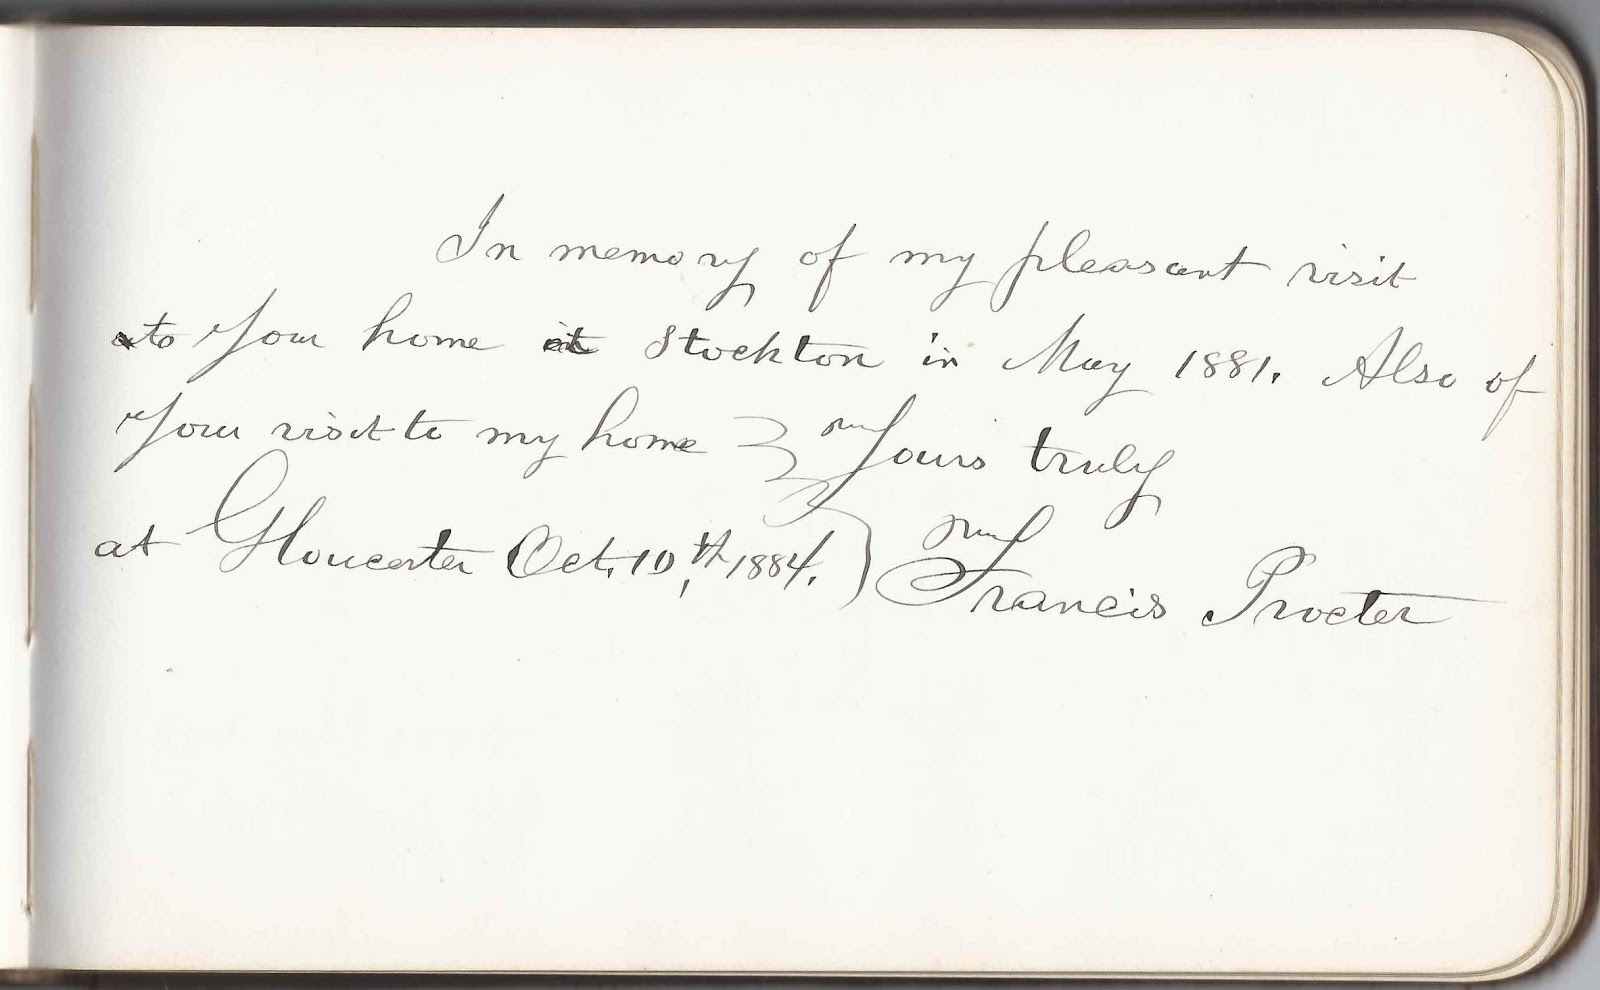 In memory of my pleasant visit
to your home at Stockton in May 1881. Also of
your visit to my home
Yours truly
at Gloucester Oct. 10,th 1884.
Francis Procter